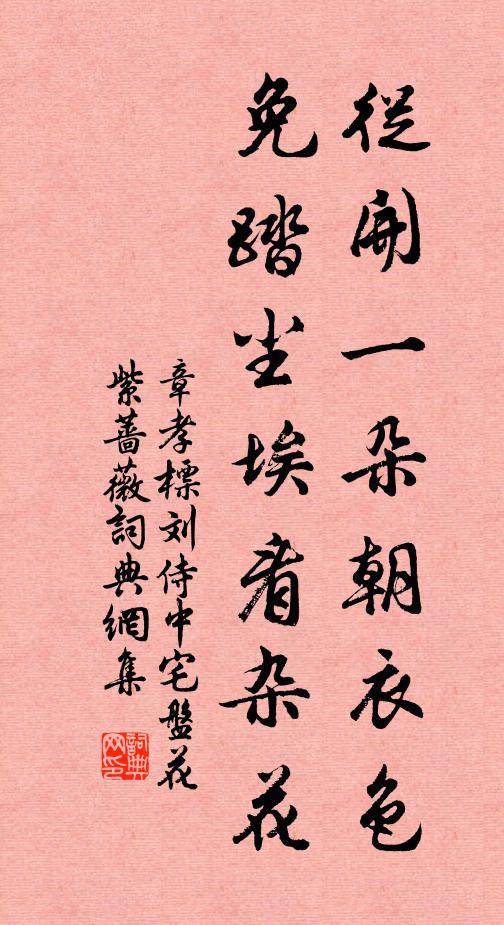 從開一朵朝衣色
免踏尘埃看杂花
章孝標刘侍中宅盤花
紫薔薇詞典網集
詞典网印